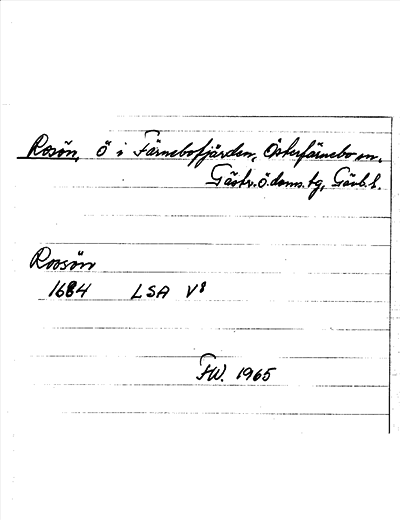 Rosön, ö i Färnebofjärden, Österfärnebo sn.
Gästr. ö. doms. tg, Gävleb. l.
Roosön
1684 LSA V8
FW. 1965